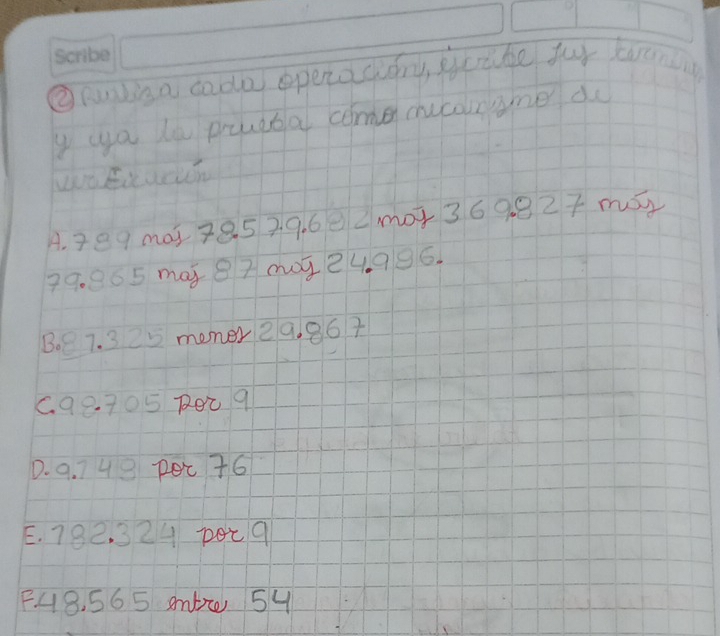 Scribe
② Realiza cada operación, escribe sus
y la prueba como mecanismo de
A. 789 más 78.579.682 más 369.827 más
79.865 más 87 más 24.986.
B. 87.325 menos 29.867
C. 98.705 por 9
D. 9.748 por 76
E. 782.324 por 9
F. 48.565 entre 54